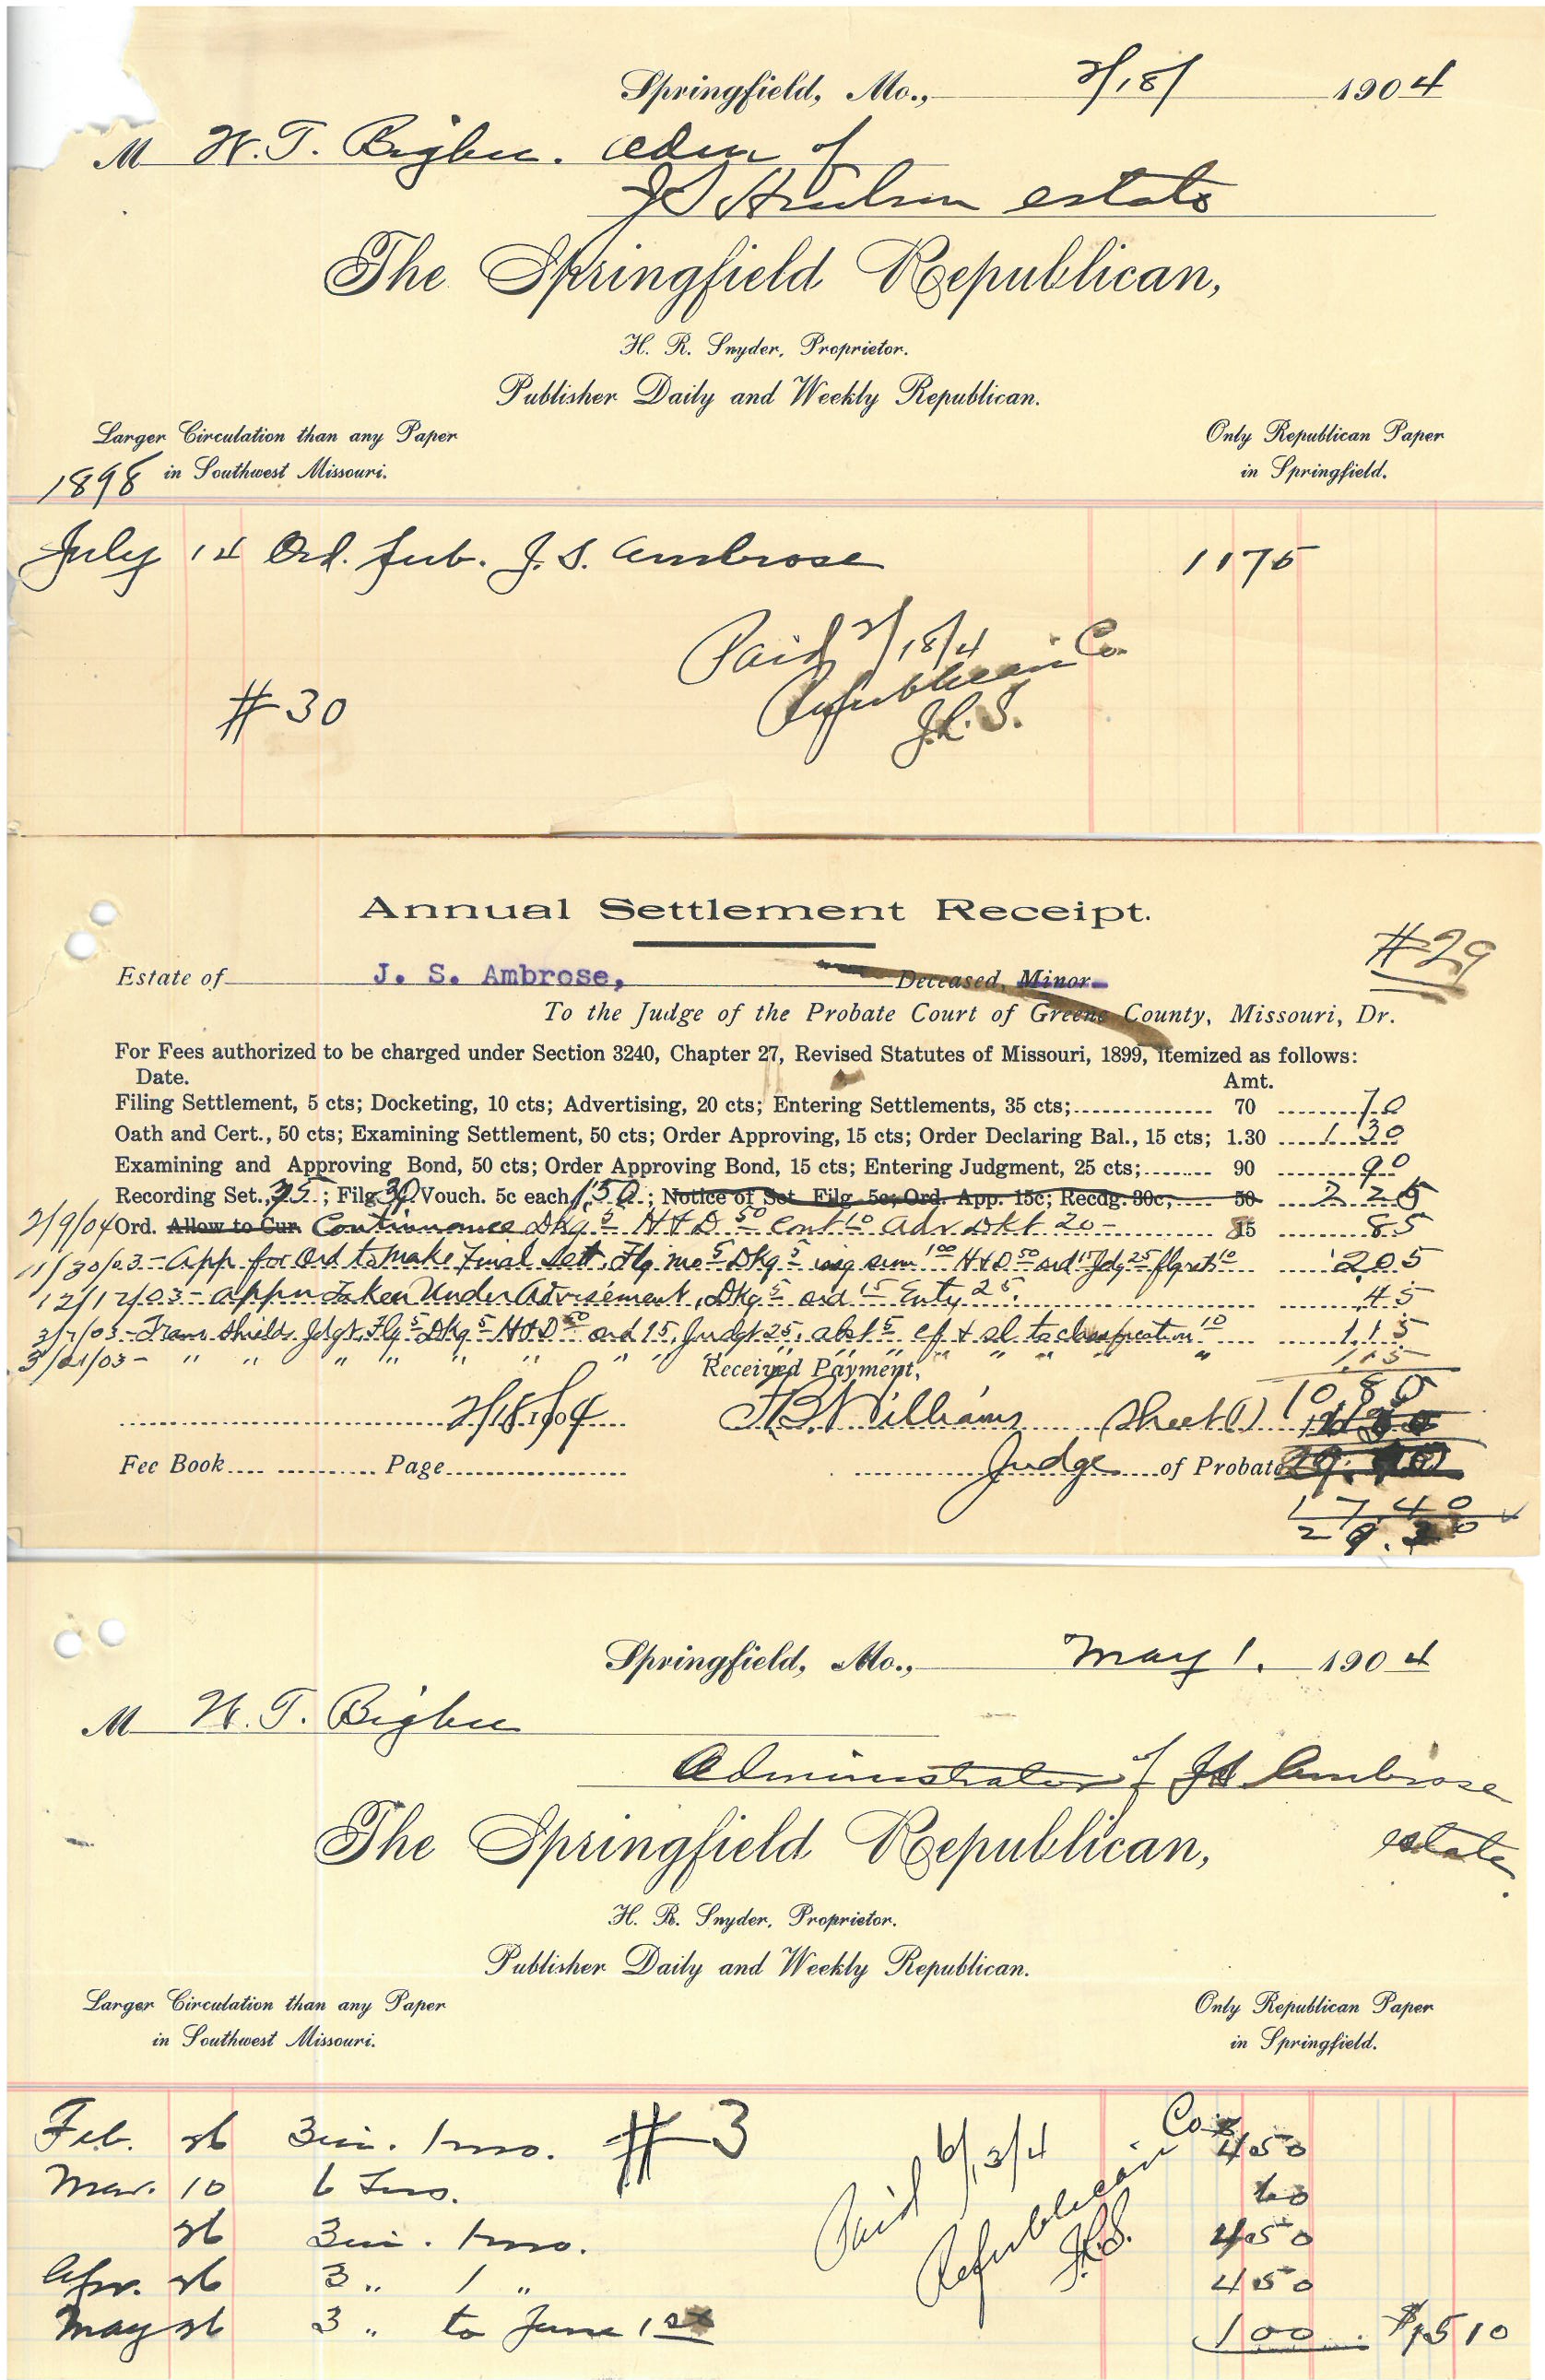 Springfield, Mo., 2/18/ 1904
M W. T. Bigbee. Adm of
J S estate
The Springfield Republican,
H. R. Snyder, Proprietor.
Publisher Daily and Weekly Republican.
Larger Circulation than any Paper
in Southwest Missouri.
Only Republican Paper
in Springfield.
1898
July 14 Ord. Pub. J. S. Ambrose 11 75
Paid 2/18/4
Republican Co.
#30
Annual Settlement Receipt.
#29
Estate of J. S. Ambrose, Deceased, Minor
To the Judge of the Probate Court of Greene County, Missouri, Dr.
For Fees authorized to be charged under Section 3240, Chapter 27, Revised Statutes of Missouri, 1899, itemized as follows:
Date. Amt.
Filing Settlement, 5 cts; Docketing, 10 cts; Advertising, 20 cts; Entering Settlements, 35 cts; 70 70
Oath and Cert., 50 cts; Examining Settlement, 50 cts; Order Approving, 15 cts; Order Declaring Bal., 15 cts; 1.30 1 30
Examining and Approving Bond, 50 cts; Order Approving Bond, 15 cts; Entering Judgment, 25 cts; 90 90
Recording Set. 75; Filg 30 Vouch. 5c each 1.50; Notice of Set. Filg. 5c; Ord. App. 15c; Recdg. 30c, 50 2 25
2/9/04 Ord. Allow to Cur. Continuance Dkg 5 H & D 50 Cont 10 Adv Dkt 20 85
11/30/03 - App for Ord to make Final Sett, Flg mo 5 Dkg 5 issg sum 100 H&D 50 ord 15 Jdg 25 flg ret 10 2.05
12/12/03 - Appn Taken Under Advisement, Dkg 5 ord 15 Enty 25. 45
3/7/03 - Tran Shields Jdgt, Flg 5 Dkg 5 H&D 50 ord 15, Judgt 25, abst 5 to classification 10 1.15
3/21/03 - " " " " " " " " " " " " 1.15
Received Payment,
10 80
2/18 1904 Williams Sheet (1)
Fee Book Page Judge of Probate
17.40
29.20
Springfield, Mo., May 1. 1904
M W. T. Bigbee
Administrator of J S Ambrose
estate.
The Springfield Republican,
H. R. Snyder, Proprietor.
Publisher Daily and Weekly Republican.
Larger Circulation than any Paper
in Southwest Missouri.
Only Republican Paper
in Springfield.
Feb. 26 3 in. 1 mo. #3 4 50
Mar. 10 6 Ins. 60
26 3 in. 1 mo. 4 50
Apr. 26 3 " 1 " 4 50
May 26 3 " to June 1st 1 00 $15 10
Paid 6/3/4
Republican Co